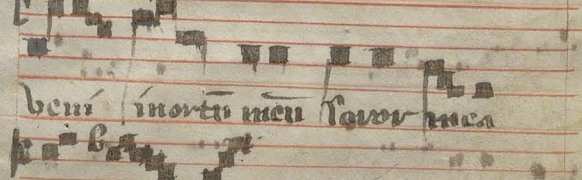 veni inortū meū soror mea